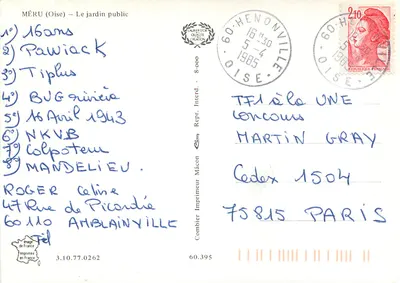 MÉRU (Oise) — Le jardin public
1°) 16ans
2°) Pawiack
3°) Tiphus
4°) BUG rivière
5°) 16 Avril 1943
6°) NKVB
7°) Colpoteur
8°) MANDELIEU.
ROGER Céline
47 Rue de Picardie
60110 AMBLAINVILLE
3.10.77.0262
60.395
Combier Imprimeur Mâcon
Repr. Interd.
60-HENONVILLE
16H30
5-4
1985
OISE
2,10
TF1 à la UNE
concours
MARTIN GRAY
Cedex 1504
75815 PARIS